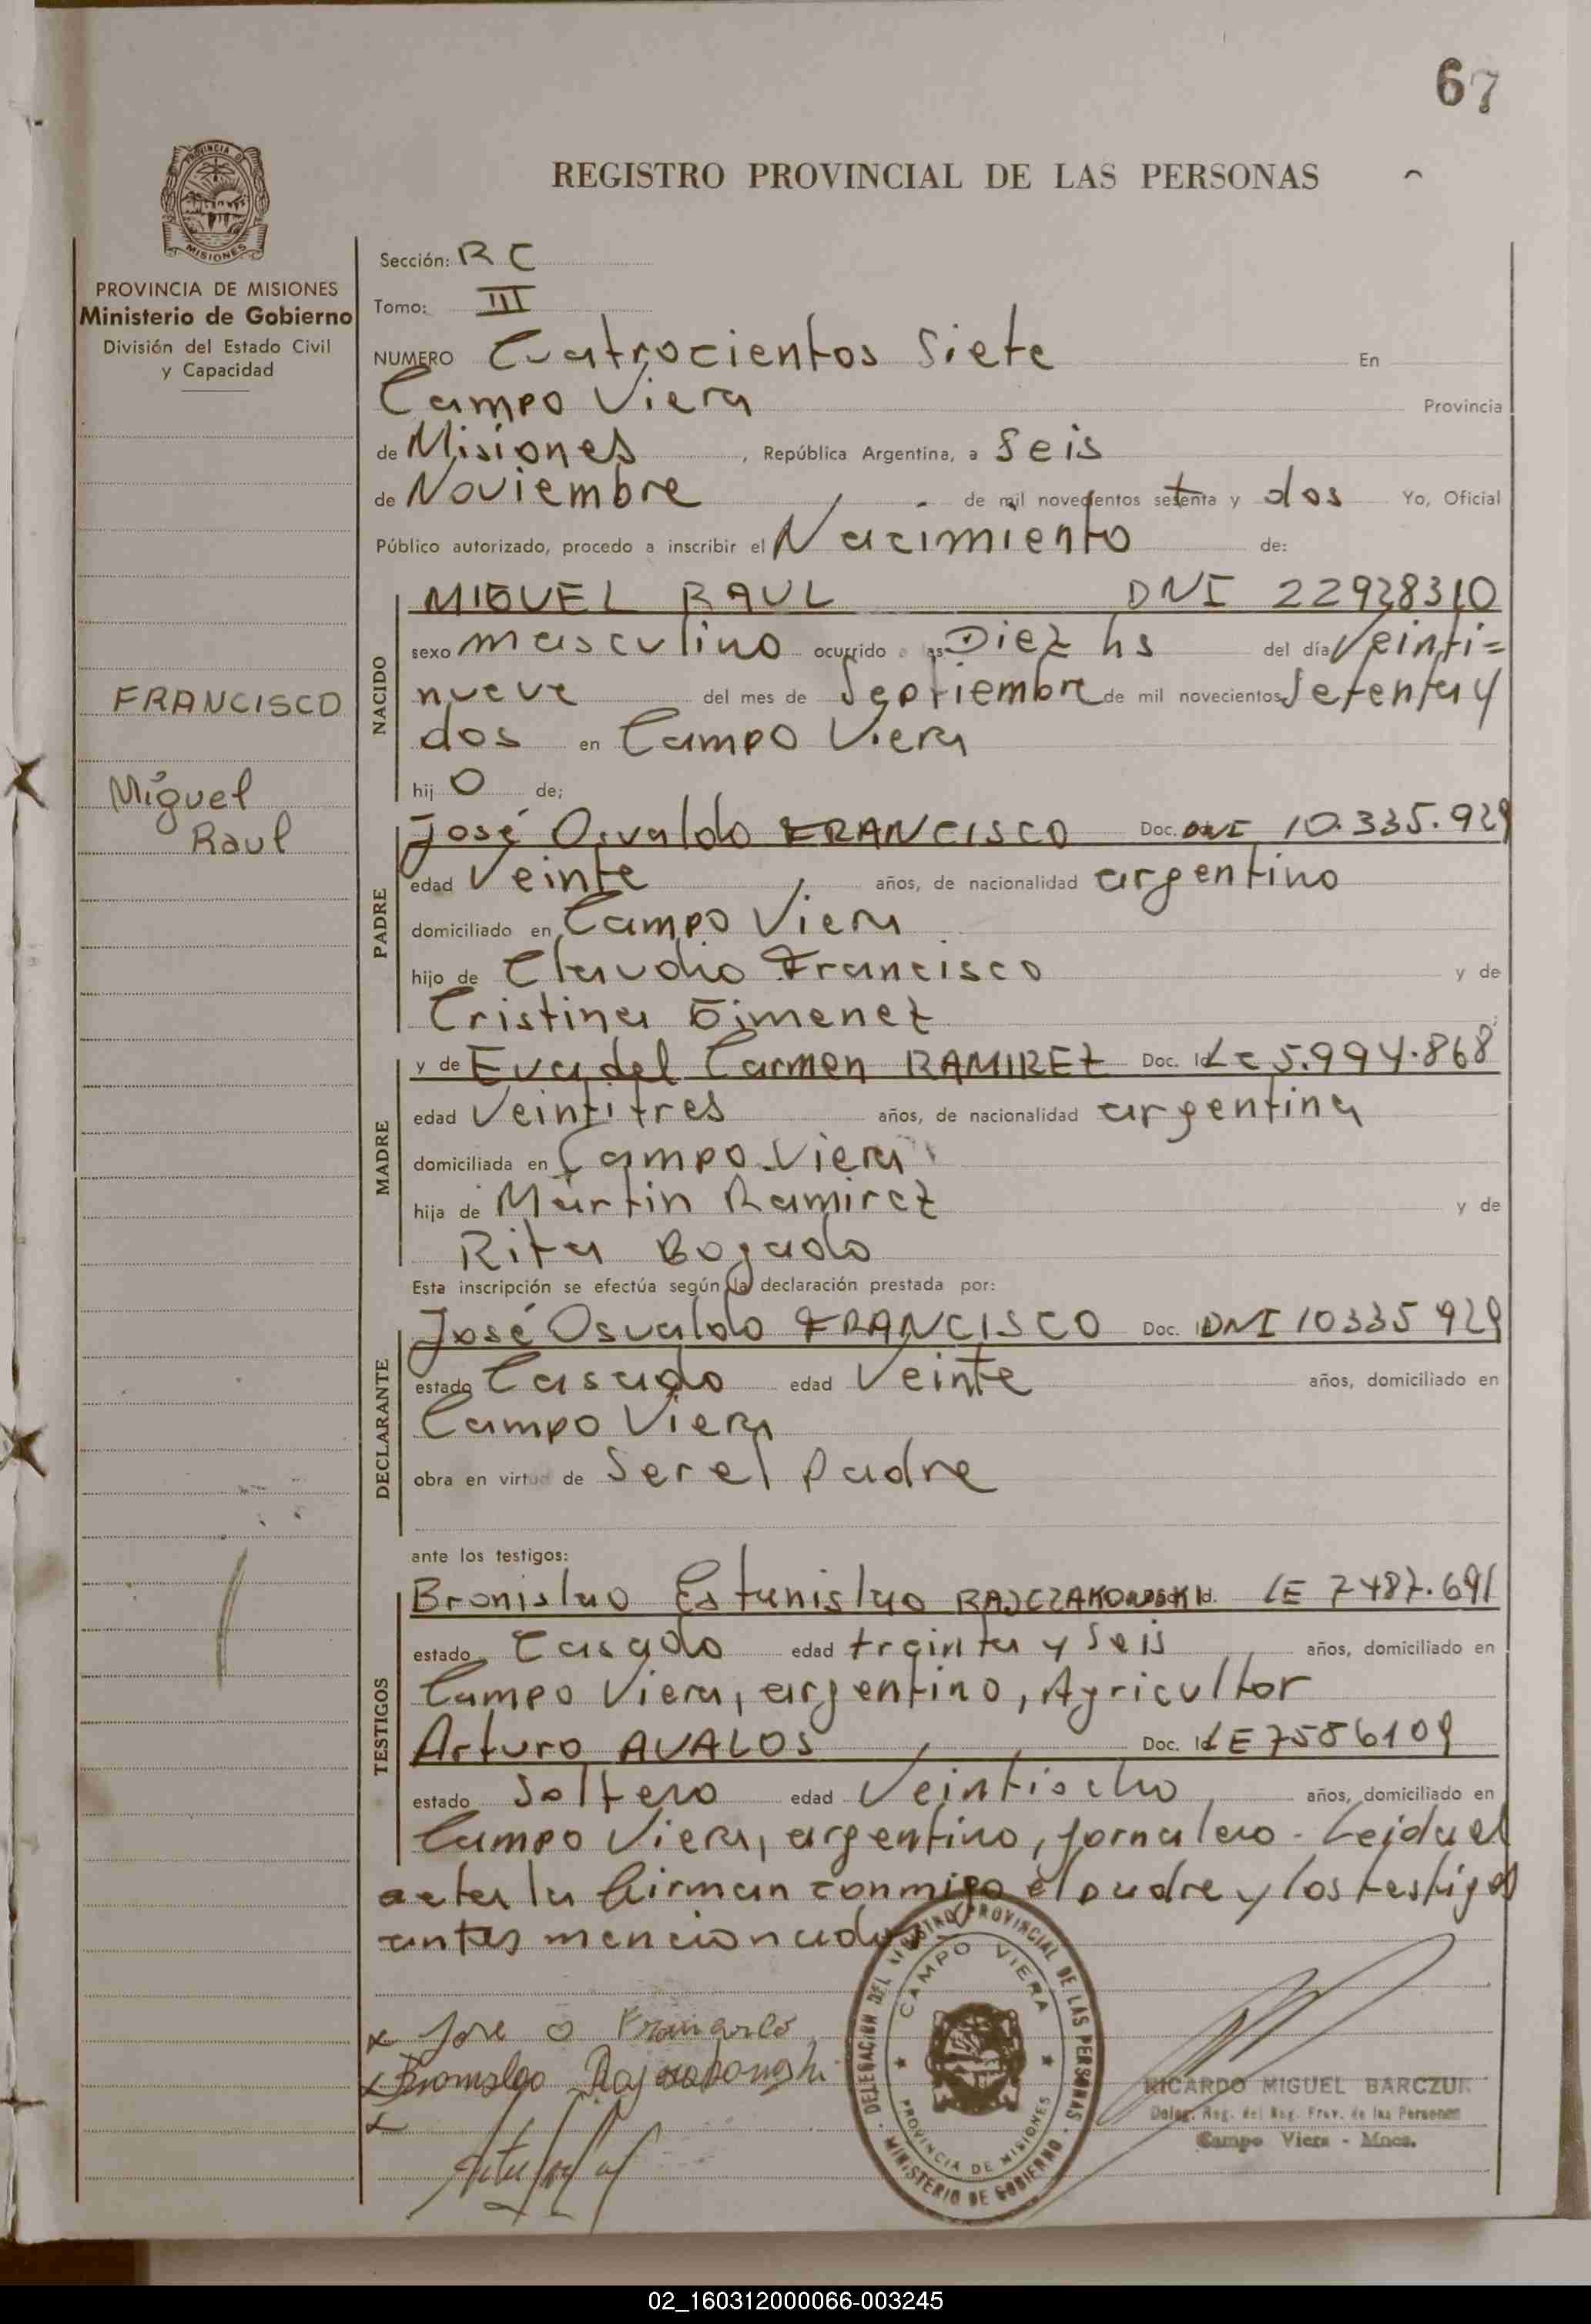 67
PROVINCIA DE
MISIONES
REGISTRO PROVINCIAL DE LAS PERSONAS
PROVINCIA DE MISIONES
Ministerio de Gobierno
División del Estado Civil
y Capacidad
Sección: R C
Tomo: III
NUMERO Cuatrocientos Siete En
Campo Viera Provincia
de Misiones, República Argentina, a Seis
de Noviembre de mil novecientos setenta y dos Yo, Oficial
Público autorizado, procedo a inscribir el Nacimiento de:
FRANCISCO
Miguel
Raul
NACIDO
MIGUEL RAUL DNI 22928310
sexo masculino ocurrido a las Diez hs del día Veinti=
nueve del mes de Septiembre de mil novecientos Setenta y
dos en Campo Viera
hij o de;
PADRE
José Osvaldo FRANCISCO Doc. DNI 10.335.929
edad Veinte años, de nacionalidad argentino
domiciliado en Campo Viera
hijo de Claudio Francisco y de
Cristina Gimenez
MADRE
y de Eva del Carmen RAMIREZ Doc. Id LC 5.994.868
edad Veintitres años, de nacionalidad argentina
domiciliada en Campo Viera
hija de Martin Ramirez y de
Rita Bogado
Esta inscripción se efectúa según la declaración prestada por:
DECLARANTE
José Osvaldo FRANCISCO Doc. DNI 10335929
estado Casado edad Veinte años, domiciliado en
Campo Viera
obra en virtud de Ser el Padre
ante los testigos:
TESTIGOS
Bronislao Estanislao RAJCZAKOWSKI Id. LE 7487.691
estado Casado edad trainta y Seis años, domiciliado en
Campo Viera, argentino, Agricultor
Arturo AVALOS Doc. Id LE 7586109
estado Soltero edad Veintiocho años, domiciliado en
Campo Viera, argentino, jornalero - Leida el
acta la firman conmigo el padre y los testigos
antes mencionados
x Jose O Francisco
x Bronislao
x
DELEGACION DEL REGISTRO PROVINCIAL DE LAS PERSONAS
CAMPO VIERA
PROVINCIA DE MISIONES
MINISTERIO DE GOBIERNO
RICARDO MIGUEL BARCZUK
Deleg. Reg. del Reg. Prov. de las Personas
Campo Viera - Mnes.
02_160312000066-003245